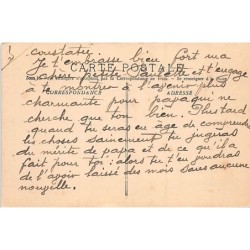 constater.
Je t'embrasse bien fort ma
CARTE POSTALE
chère petite et t'engage
à te montrer à l'avenir plus
CORRESPONDANCE
ADRESSE
charmante pour papa qui ne
cherche que ton bien. Plus tard
quand tu seras en âge de comprendre
les choses sainement tu jugeras
du mérite de papa et de ce qu'il a
fait pour toi: alors tu t'en voudras
de l'avoir laissé des mois sans aucune
nouvelle.